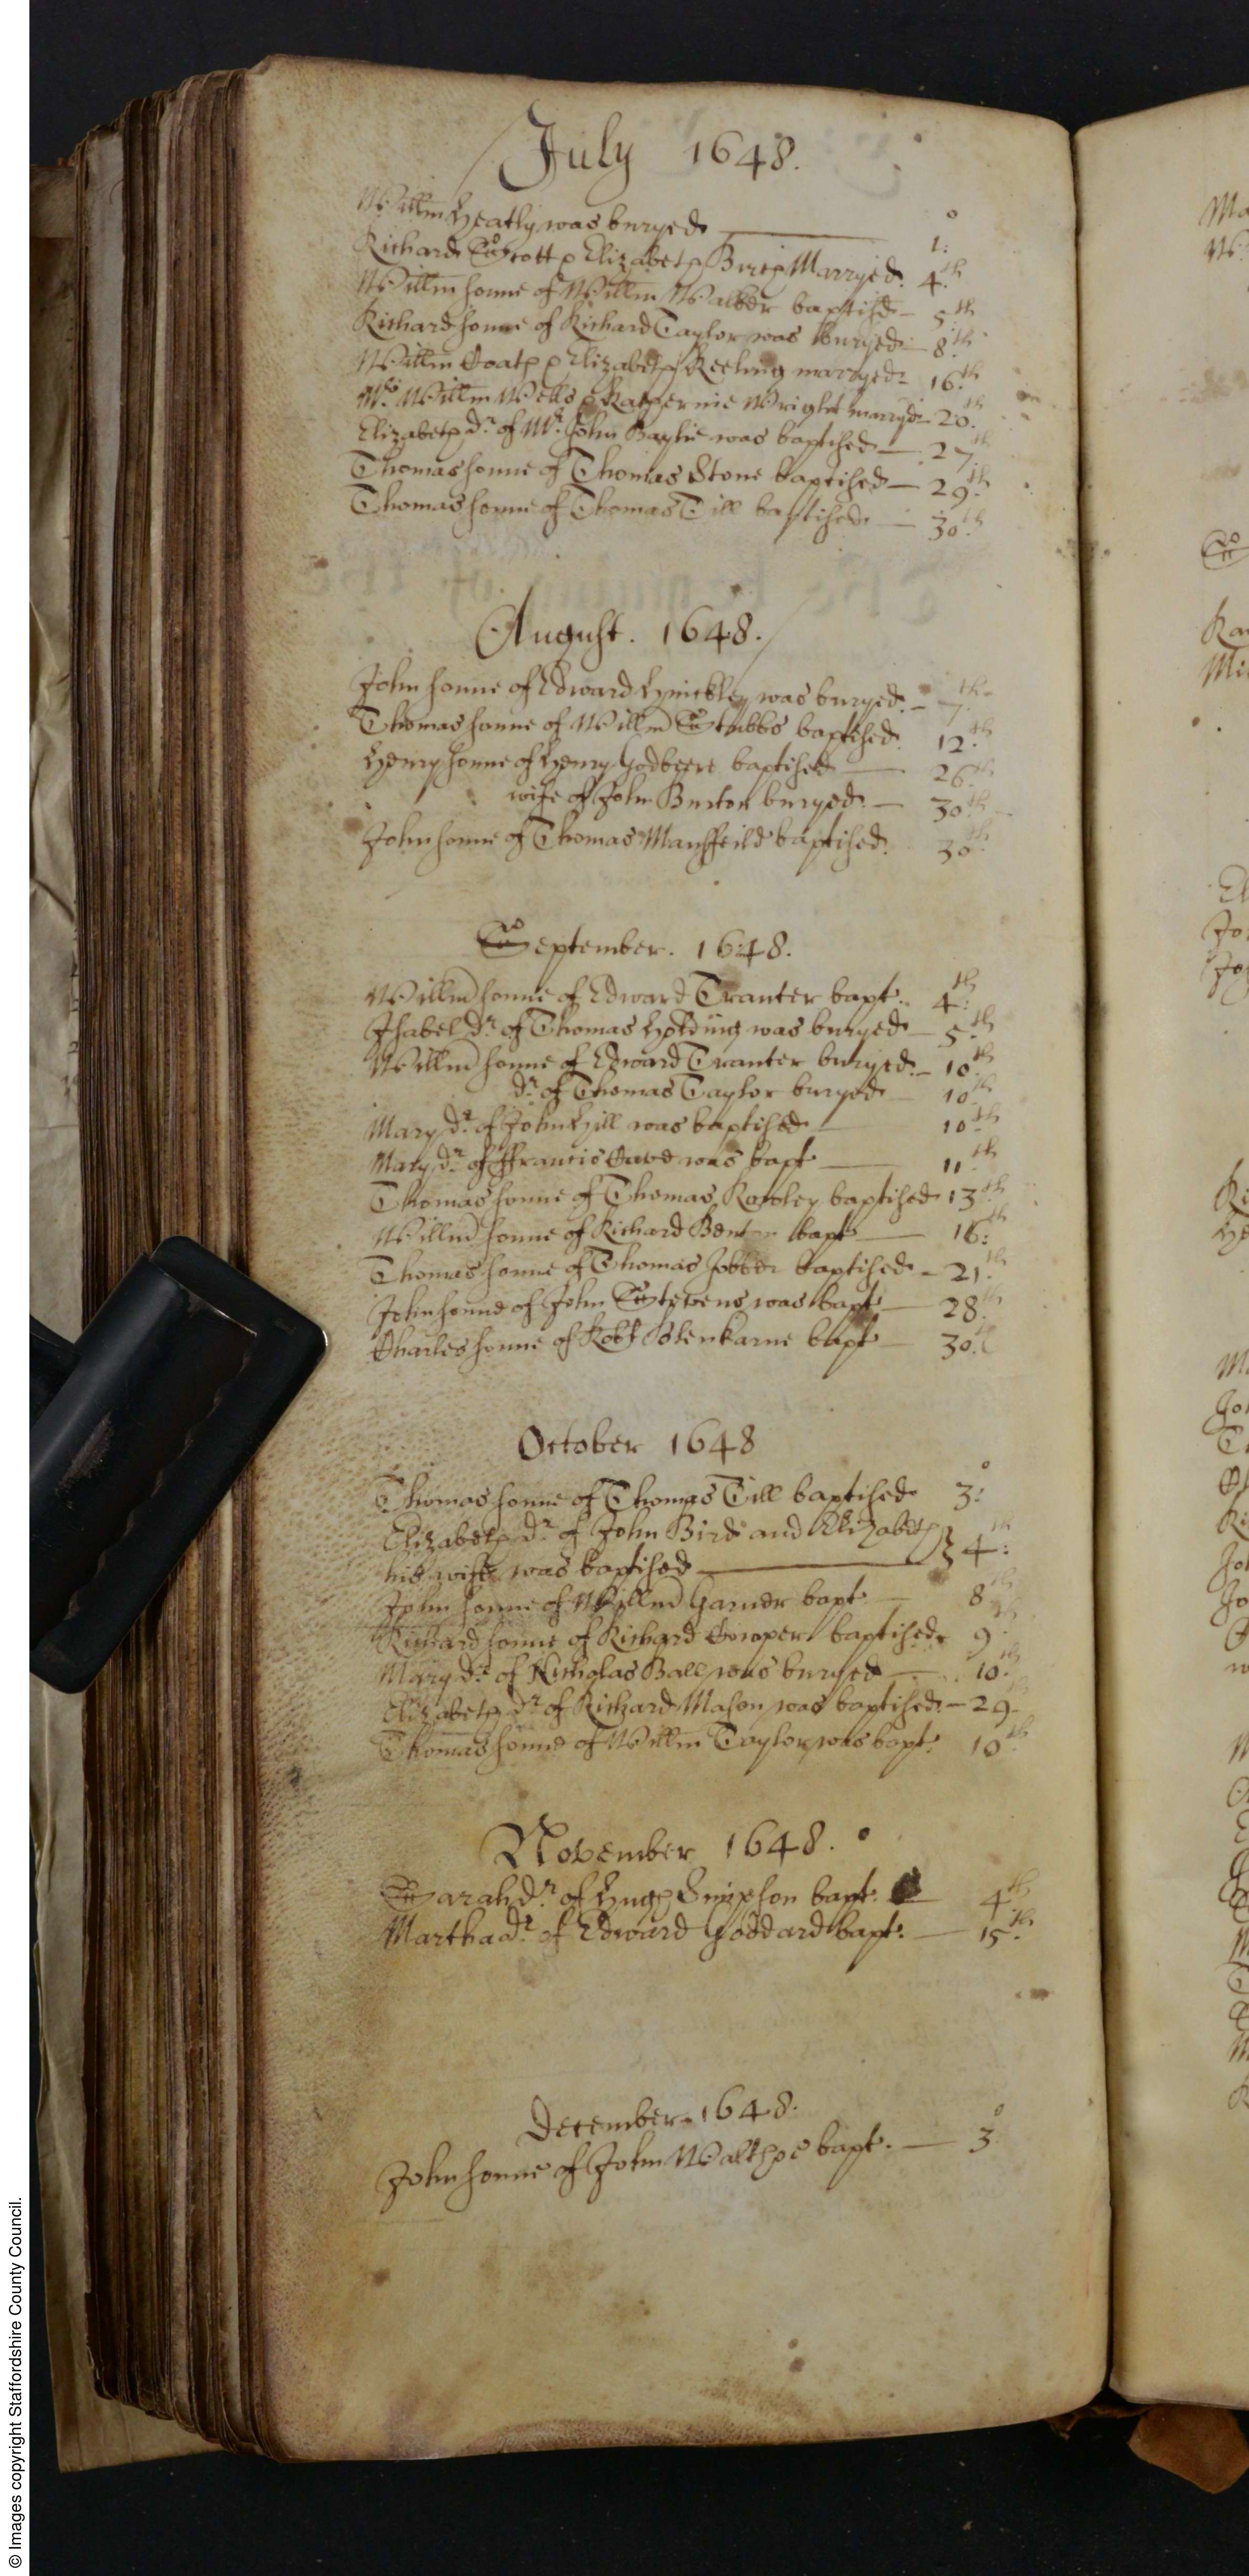 July 1648.
Willm Heatly was buryed 1:
Richard Scott & Elizabeth Marryed. 4th
Willm sonne of Willm Walker baptised 5th
Richard sonne of Richard Taylor was buryed 8th
Willm Coats & Elizabeth Keeling marryed 16th
Mr. Willm Wells & Katherine Wright marryd 20th
Elizabeth dr. of Mr. John Baylie was baptised 27th
Thomas sonne of Thomas Stone baptised 29th
Thomas sonne of Thomas Till baptised 30th
August. 1648.
John sonne of Edward Hinckley was buryed. 7th
Thomas sonne of Willm Stubbs baptised. 12th
Henry sonne of Henry Godbeere baptised 26th
wife of John Burton buryed. 30th
John sonne of Thomas Mansfeild baptised. 30th
September. 1648.
Willm sonne of Edward Tranter bapt. 4th
Isabel dr. of Thomas Holding was buryed 5th
Willm sonne of Edward Tranter buryed. 10th
dr. of Thomas Taylor buryed 10th
Mary dr. of John Hill was baptised 10th
Mary dr. of ffrancis Cave was bapt 11th
Thomas sonne of Thomas Rowley baptised 13th
Willm sonne of Richard Benton bapt 16th
Thomas sonne of Thomas Jobber baptised 21th
John sonne of John Stevens was bapt 28th
Charles sonne of Robt bapt 30th
October 1648
Thomas sonne of Thomas Till baptised 3:
Elizabeth dr. of John Bird and Elizabeth
his wife was baptised 4th
John sonne of Willm Garner bapt 8th
Richard sonne of Richard Cowper baptised 9th
Mary dr. of Nicholas Ball was buryed 10th
Elizabeth dr. of Richard Mason was baptised. 29
Thomas sonne of Willm Taylor was bapt. 10th
November 1648.
Sarah dr. of Hugh Simpson bapt. 4th
Martha dr. of Edward Goddard bapt. 15th
December 1648.
John sonne of John bapt. 3
© Images copyright Staffordshire County Council.